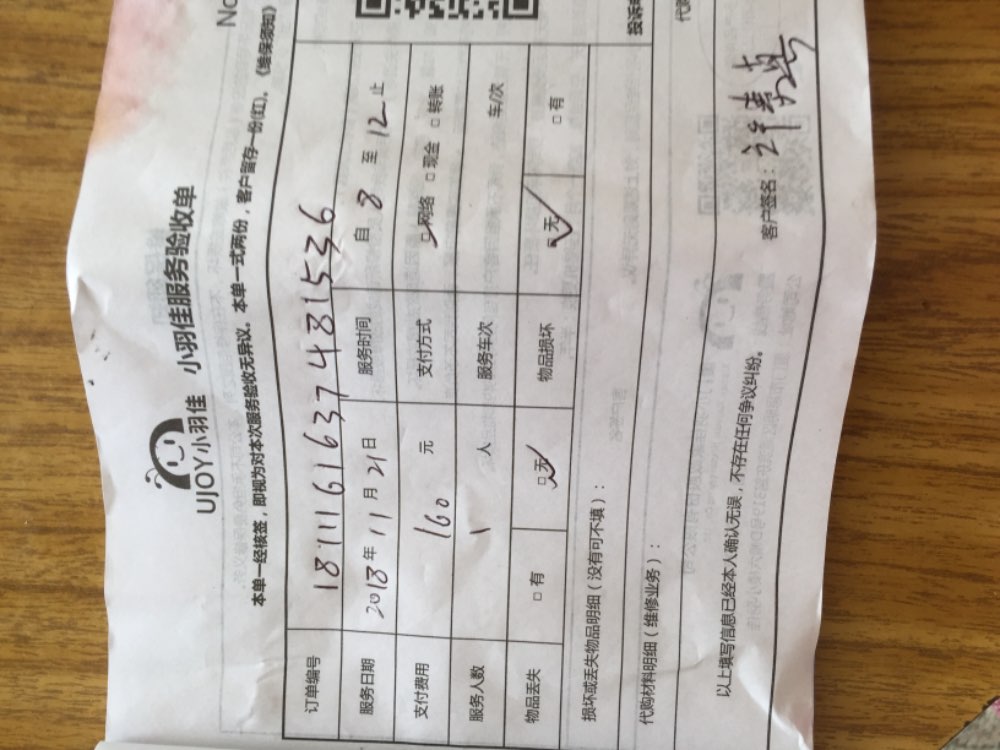 No
UJOY小羽佳 小羽佳服务验收单
本单一经核签，即视为对本次服务验收无异议。本单一式两份，客户留存一份(红)。《维保须知》
订单编号 181116163748153​6
服务日期 2018年11月21日 服务时间 自 8 至 12 止
支付费用 160 元 支付方式 □网络 □现金 □转账
服务人数 1 人 服务车次 车/次
物品丢失 □有 □无 物品损坏 □无 □有
损坏或丢失物品明细（没有可不填）：
投诉
代购材料明细（维修业务）：
代
以上填写信息已经本人确认无误，不存在任何争议纠纷。
客户签名：